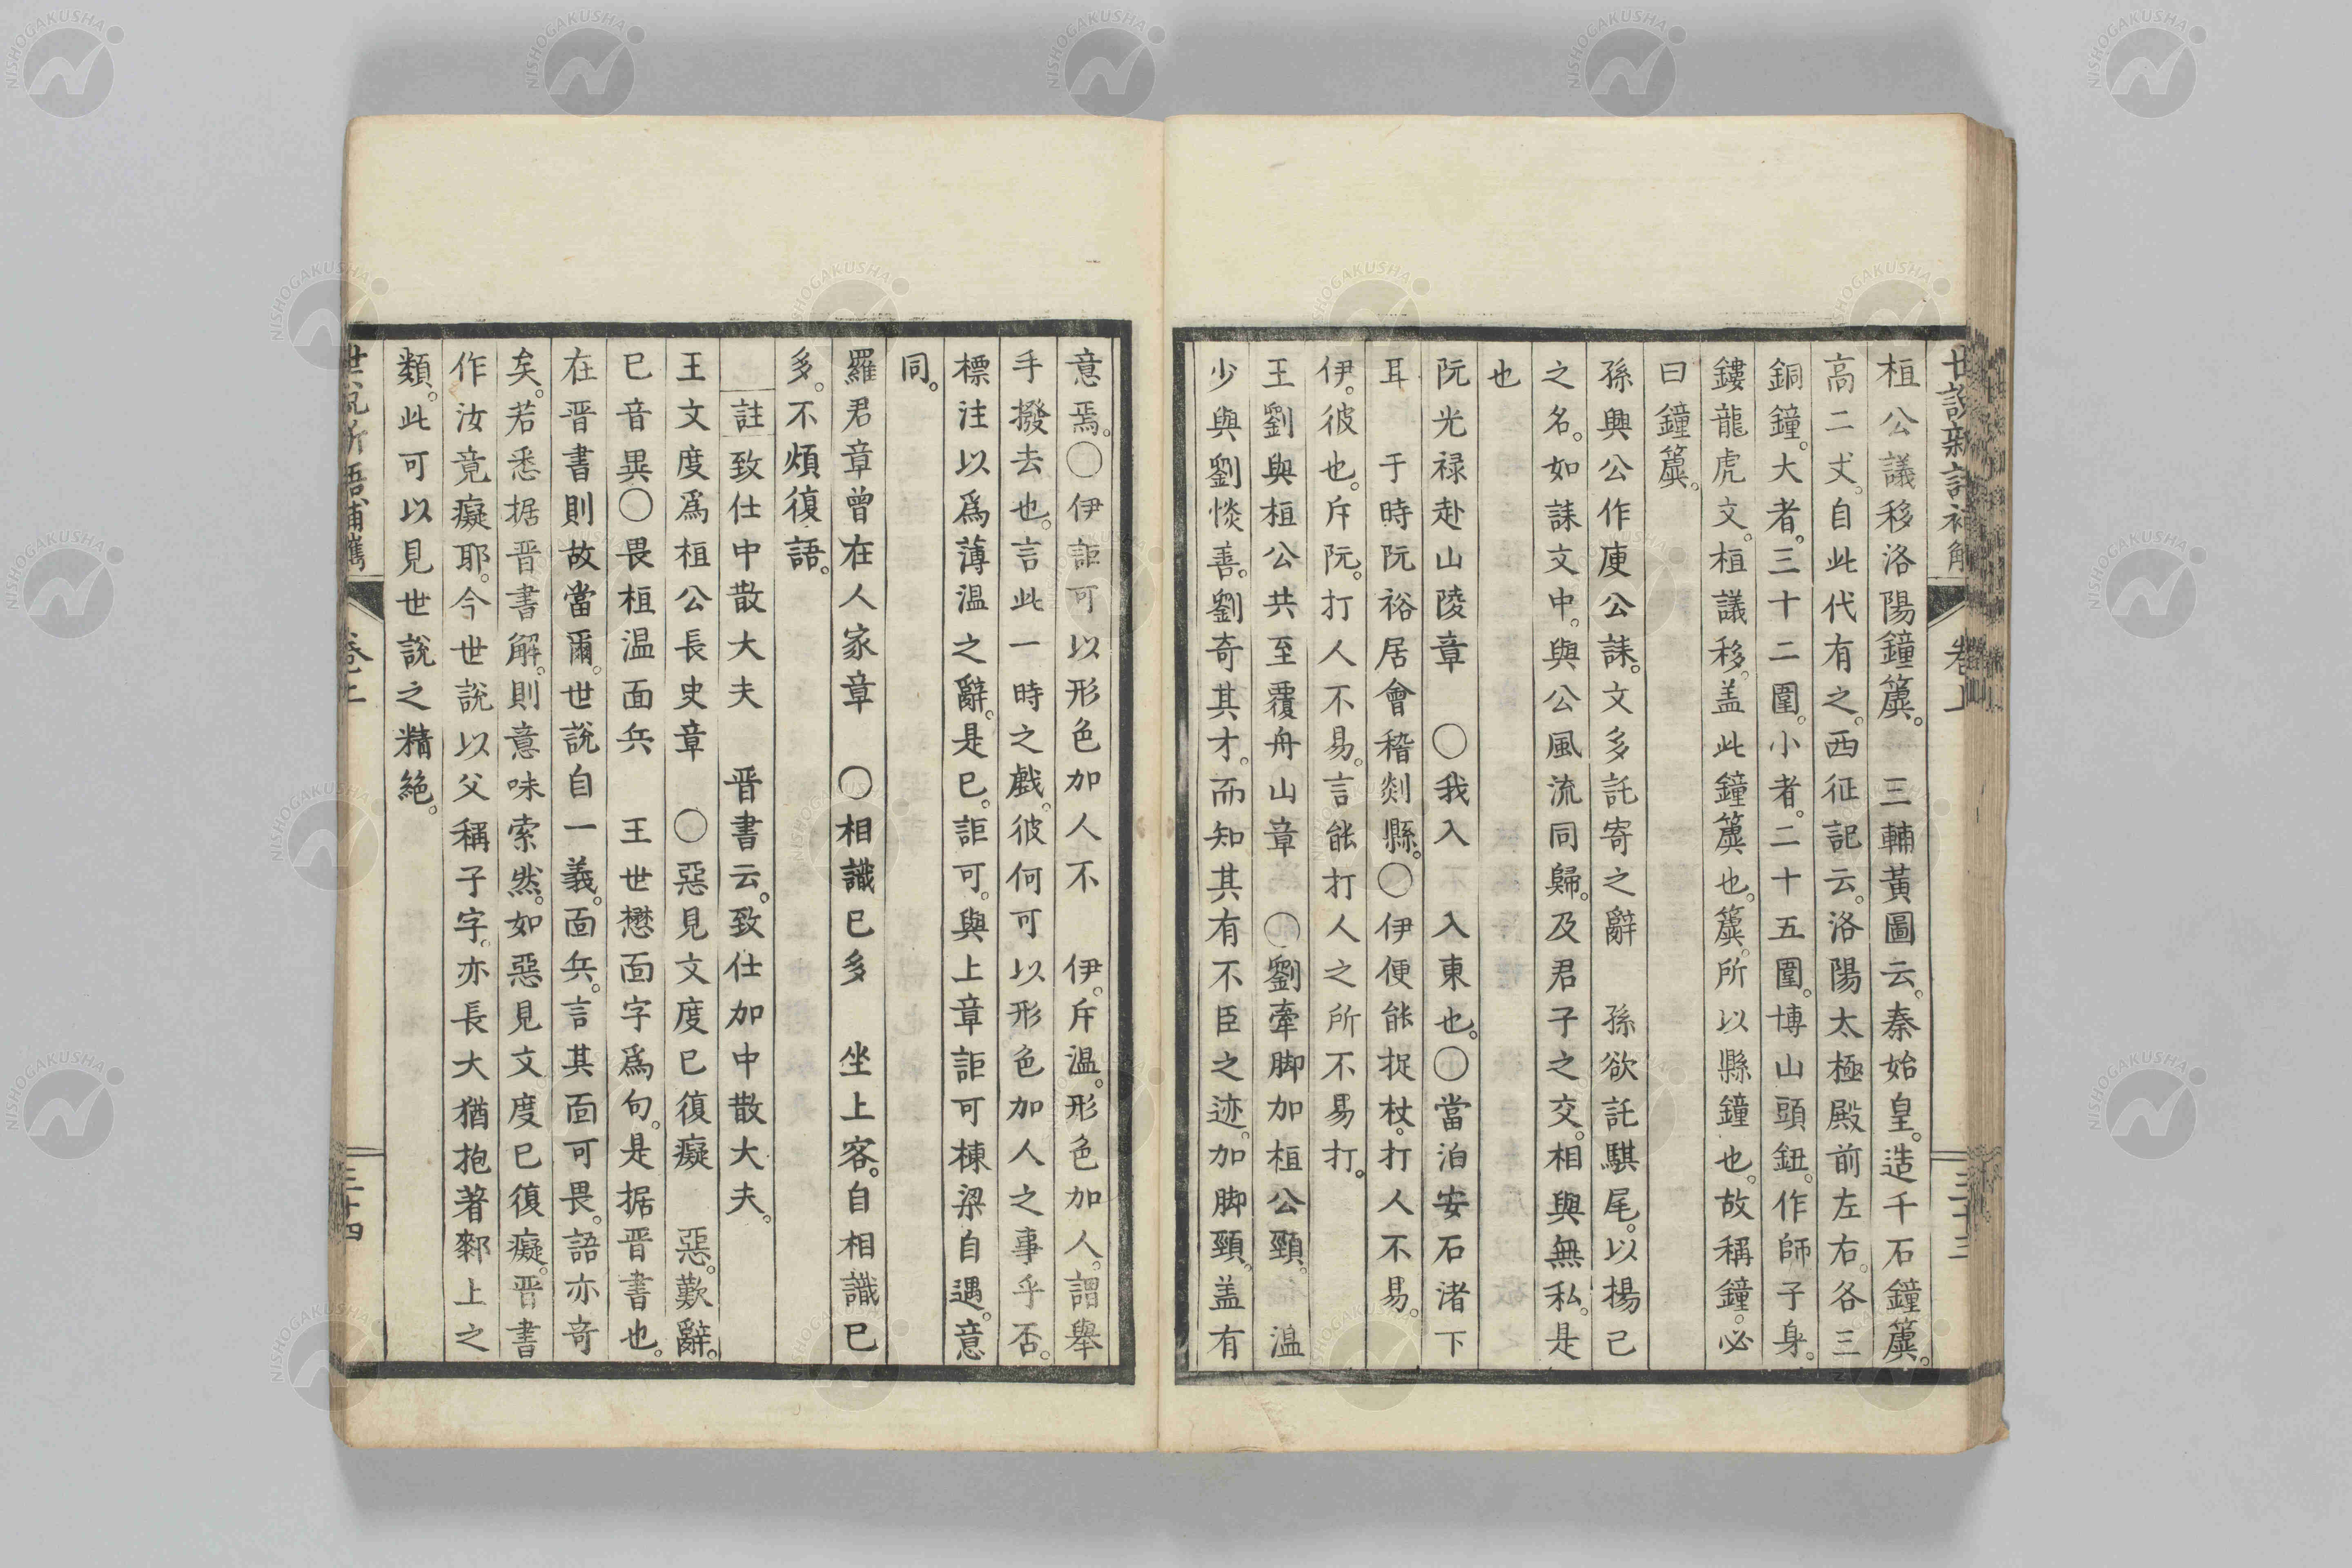 桓公議移洛陽鐘簴。　三輔黃圖云。秦始皇。造千石鐘簴。
高二丈。自此代有之。西征記云。洛陽太極殿前左右。各三
銅鐘。大者。三十二圍。小者。二十五圍。博山頭鈕。作師子身。
鏤龍虎文。桓議移。盖此鐘簴也。簴。所以縣鐘也。故稱鐘。必
曰鐘簴。
孫興公作庾公誄。文多託寄之辭　孫欲託騏尾。以揚己
之名。如誄文中。與公風流同歸。及君子之交。相與無私。是
也
阮光禄赴山陵章　〇我入　入東也。〇當泊安石渚下
耳　于時阮裕居會稽剡縣。〇伊便能捉杖。打人不易。
伊。彼也。斥阮。打人不易。言能打人之所不易打。
王劉與桓公共至覆舟山章　〇劉牽脚加桓公頸。　温
少與劉惔善。劉奇其才。而知其有不臣之迹。加脚頸。盖有
意焉。〇伊詎可以形色加人不　伊。斥温。形色加人。謂舉
手撥去也。言此一時之戲。彼何可以形色加人之事乎否。
標注以爲薄温之辭。是已。詎可。與上章詎可棟梁自遇。意
同。
羅君章曾在人家章　〇相識已多　坐上客。自相識已
多。不煩復語。
註致仕中散大夫　晋書云。致仕加中散大夫。
王文度爲桓公長史章　〇惡見文度已復癡　惡。歎辭。
已音異〇畏桓温面兵　王世懋面字爲句。是据晋書也。
在晋書則故當爾。世說自一義。面兵。言其面可畏。語亦奇
矣。若悉据晋書解。則意味索然。如惡見文度已復癡。晋書
作汝竟癡耶。今世說以父稱子字。亦長大猶抱著郄上之
類。此可以見世說之精絶。